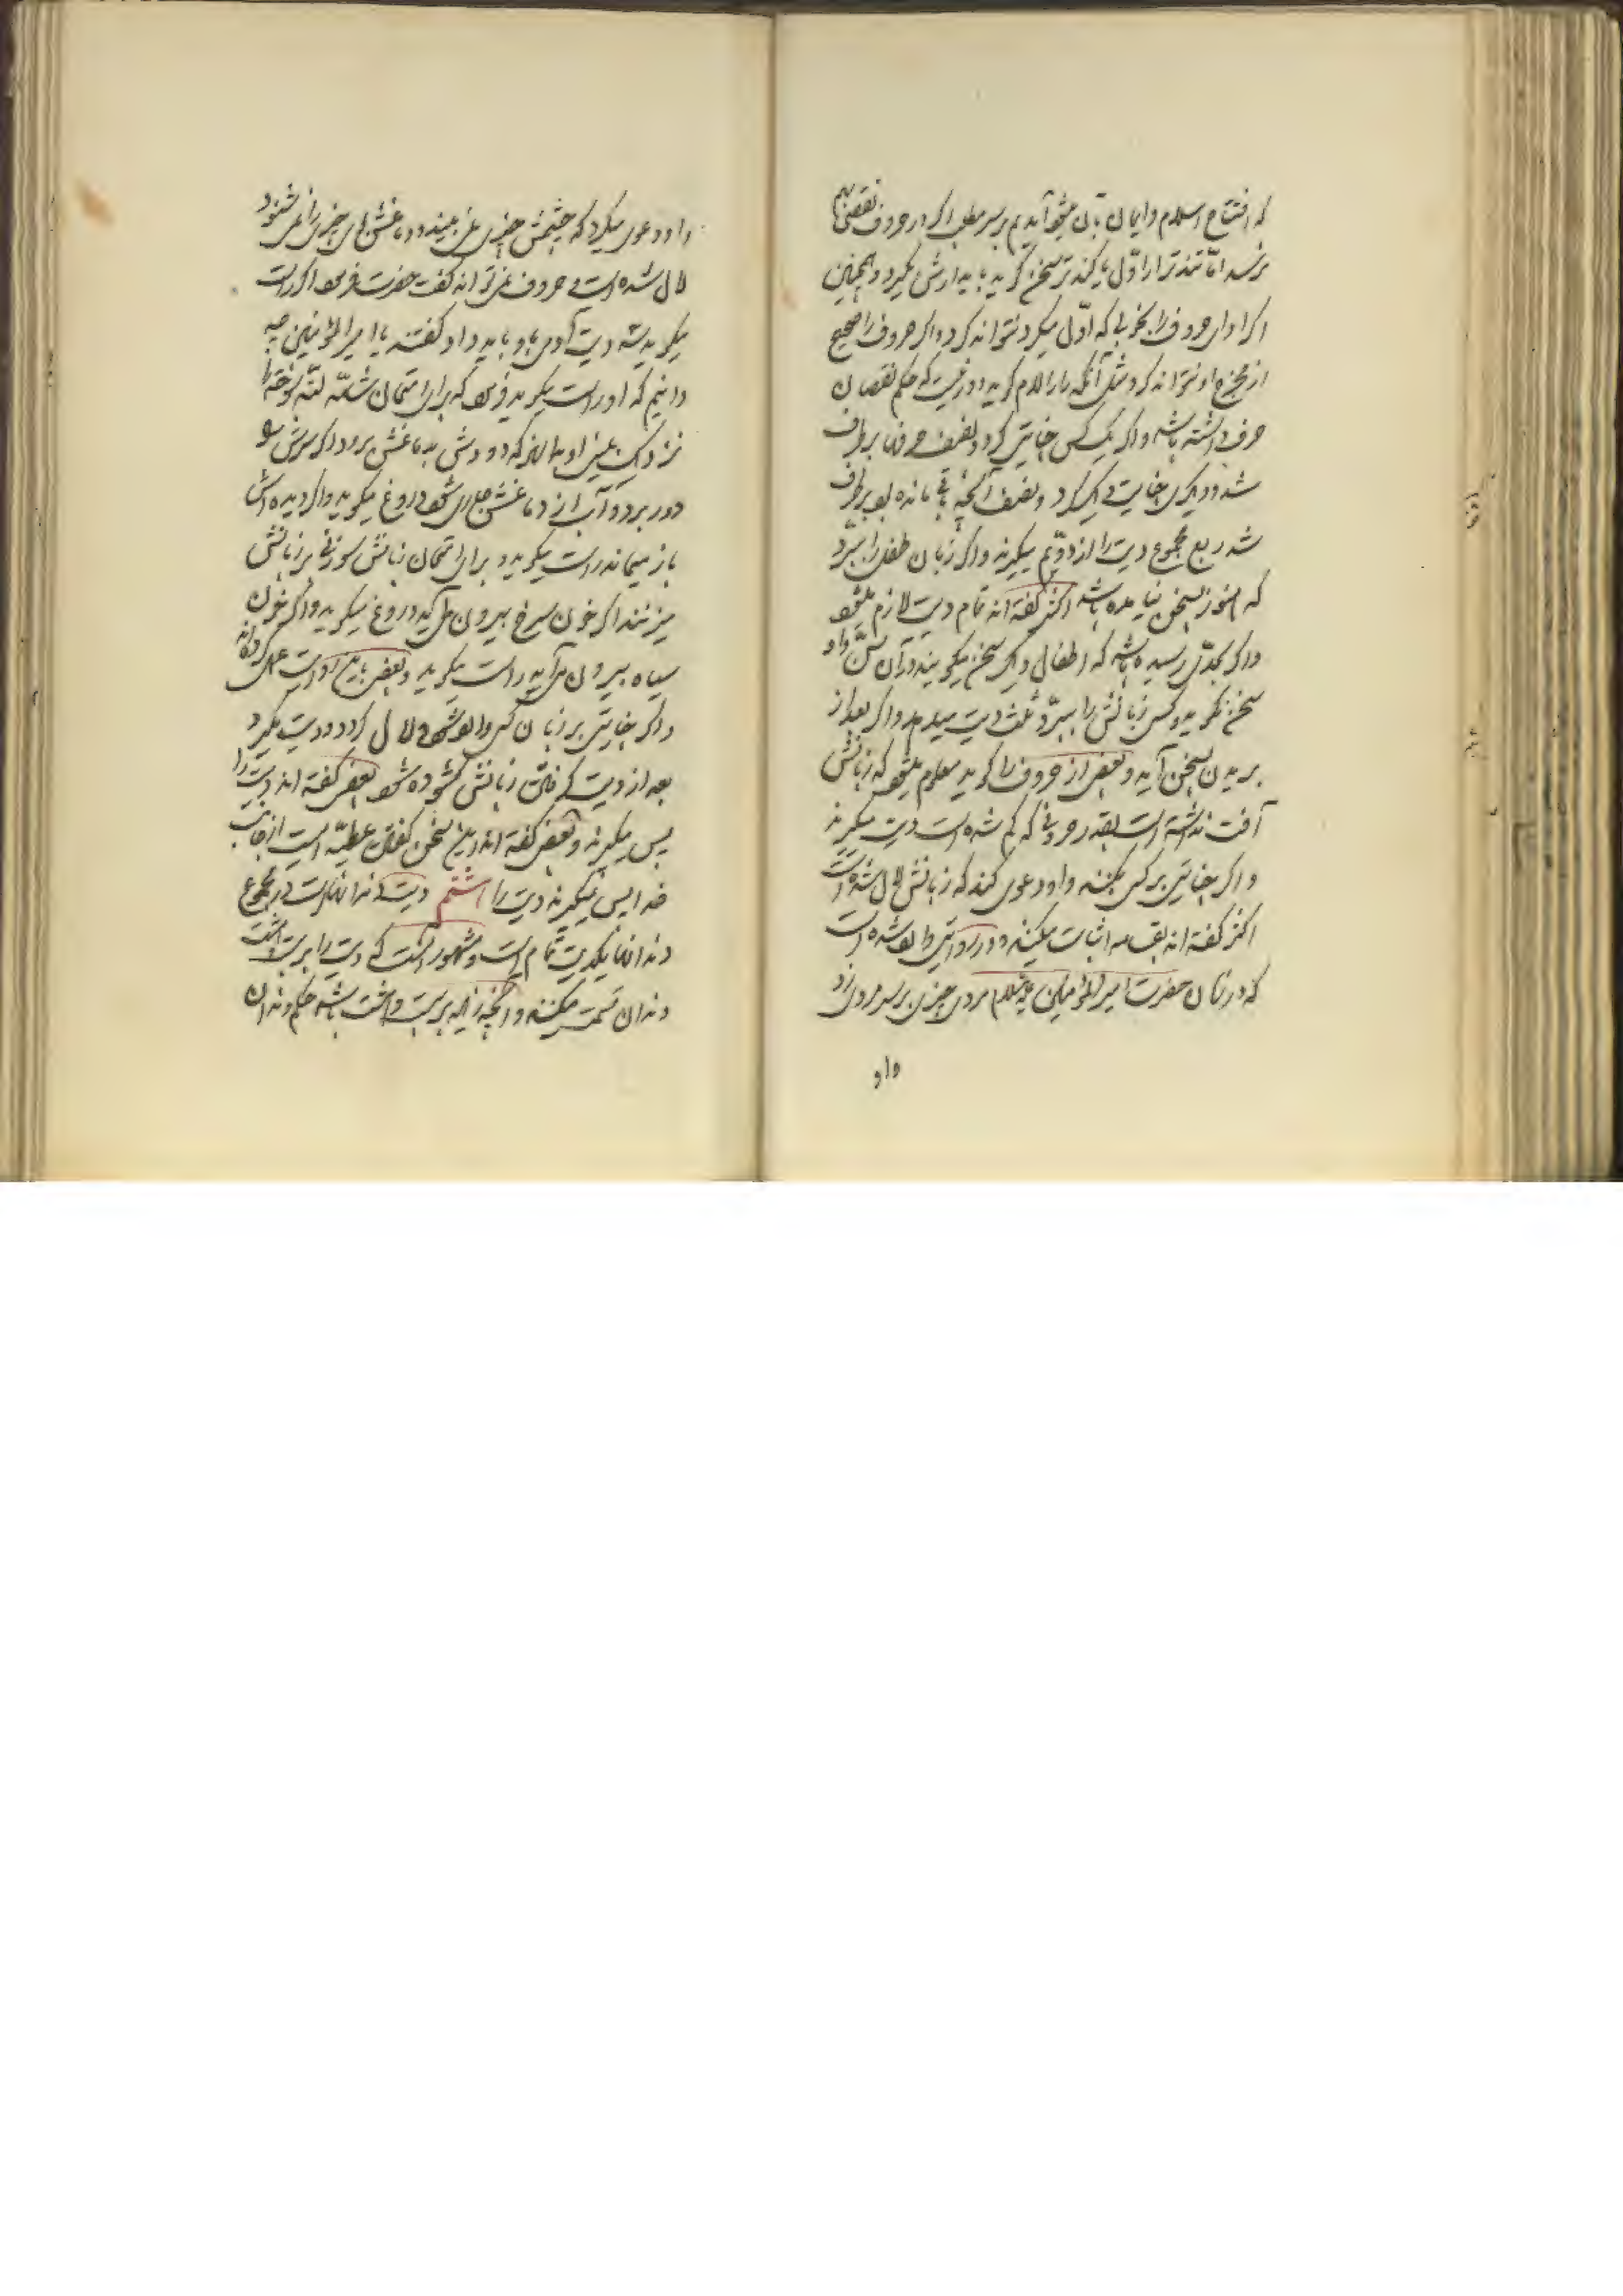 که افتتاح اسلام و ایمان بآن میشود آمدیم بر سر مطلب اگر در حروف نقصی بهم
نرسد امّا تندتر از اوّل یا کندتر سخن گوید باید ارش بگیرد و همچنین
اگر ادای حروف را بخوبی که اوّل میکرد نتواند کرد و اگر حروف را صحیح
از مخرج او نتواند کرد مثل آنکه را را لام گوید دور نیست که حکم نقصان
حرف داشته باشد و اگر یک کس جنایتی کرد و نصف حرفها برطرف
شد و دیگری جنایت دیگر کرد و نصف آنچه باقی مانده بود برطرف
شد ربع مجموع دیت را از دوّیم میگیرند و اگر زبان طفل را ببرّد
که هنوز بسخن نیامده باشد اکثر گفته اند تمام دیت لازم میشود
و اگر بحدّی رسیده باشد که اطفال دیگر سخن میگویند در آن سنّ و او
سخن نگوید و کسی زبانش را ببرّد ثلث دیت میدهد و اگر بعد از
بریدن بسخن آید و بعضی از حروف را گوید معلوم میشود که زبانش
آفت نداشته است بقدر حروفی که کم شده است دیت میگیرند
و اگر جنایتی بر کسی بکنند و او دعوی کند که زبانش لال شده است
اکثر گفته اند بقسامه اثبات میکند و در روایتی وارد شده است
که در زمان حضرت امیر المؤمنین علیه السلام مردی چیزی بر سر مردی زد
و او
و او دعوی میکرد که چشمش چیزی نمی بیند و دماغش بوی چیزی را نمی شنود
لال شده است و حروف نمی تواند گفت حضرت فرمود اگر راست
میگوید سه دیت آدمی باو باید داد گفتند یا امیر المؤمنین چه
دانیم که او راست میگوید فرمود که برای امتحان شامّه لتّه سوخته را
نزدیک بینی او بدارند که دودش بدماغش برود اگر سرش را
دور برد و آب از دماغش جاری شود دروغ میگوید و اگر دیده اش
باز میماند راست میگوید و برای امتحان زبانش سوزنی بر زبانش
میزنند اگر خون سرخ بیرون می آید دروغ میگوید و اگر خون
سیاه بیرون می آید راست میگوید و بعضی باین روایت عمل کرده اند
و اگر جنایتی بر زبان کسی واقع شود و لال گردد و دیت بگیرد
بعد از دیت گرفتن زبانش گشوده شود بعضی گفته اند دیت را
پس میگیرند و بعضی گفته اند این سخن گفتن عطیّه است از جانب
خدا پس نمیگیرند دیت را هشتم دیت دندانهاست در مجموع
دندانها یکدیت تمام است و مشهور آنست که دیت را بر بیست و هشت
دندان قسمت میکنند و آنچه زاید بر بیست و هشت باشد حکم دندان